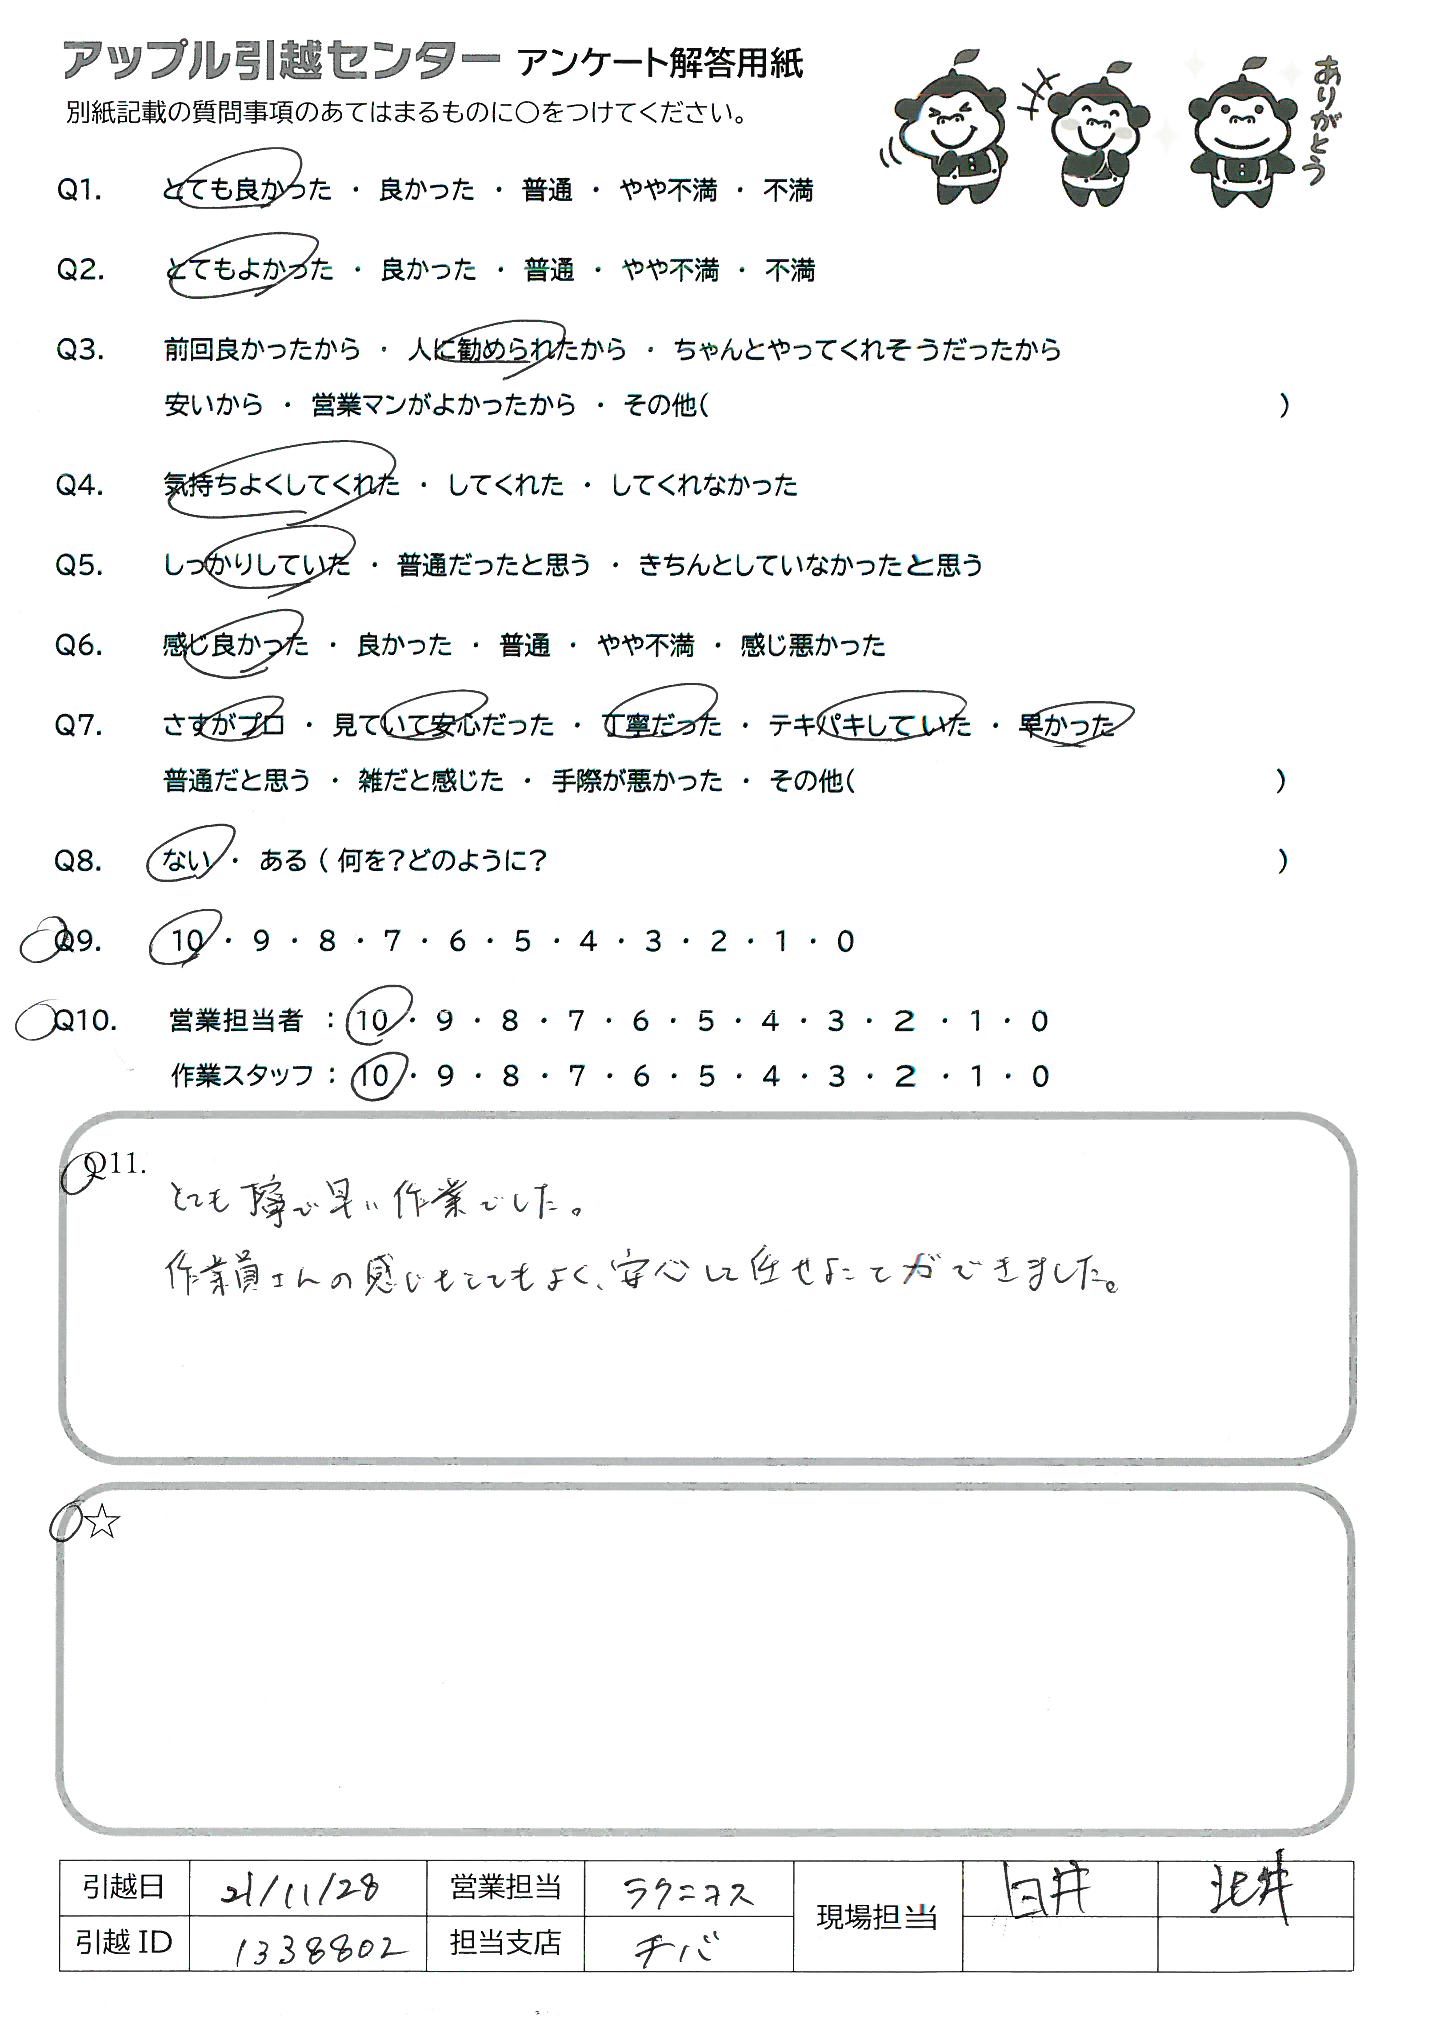 アップル引越センター アンケート解答用紙
別紙記載の質問事項のあてはまるものに○をつけてください。
ありがとう
Q1. とても良かった ・ 良かった ・ 普通 ・ やや不満 ・ 不満
Q2. とてもよかった ・ 良かった ・ 普通 ・ やや不満 ・ 不満
Q3. 前回良かったから ・ 人に勧められたから ・ ちゃんとやってくれそうだったから
安いから ・ 営業マンがよかったから ・ その他( )
Q4. 気持ちよくしてくれた ・ してくれた ・ してくれなかった
Q5. しっかりしていた ・ 普通だったと思う ・ きちんとしていなかったと思う
Q6. 感じ良かった ・ 良かった ・ 普通 ・ やや不満 ・ 感じ悪かった
Q7. さすがプロ ・ 見ていて安心だった ・ 丁寧だった ・ テキパキしていた ・ 早かった
普通だと思う ・ 雑だと感じた ・ 手際が悪かった ・ その他( )
Q8. ない ・ ある ( 何を?どのように? )
Q9. 10 ・ 9 ・ 8 ・ 7 ・ 6 ・ 5 ・ 4 ・ 3 ・ 2 ・ 1 ・ 0
Q10. 営業担当者 : 10 ・ 9 ・ 8 ・ 7 ・ 6 ・ 5 ・ 4 ・ 3 ・ 2 ・ 1 ・ 0
作業スタッフ : 10 ・ 9 ・ 8 ・ 7 ・ 6 ・ 5 ・ 4 ・ 3 ・ 2 ・ 1 ・ 0
Q11.
とても丁寧で早い作業でした。
作業員さんの感じもとてもよく、安心して任せることができました。
☆
引越日 21/11/28 営業担当 ラクニコス 現場担当 臼井 北井
引越ID 1338802 担当支店 チバ